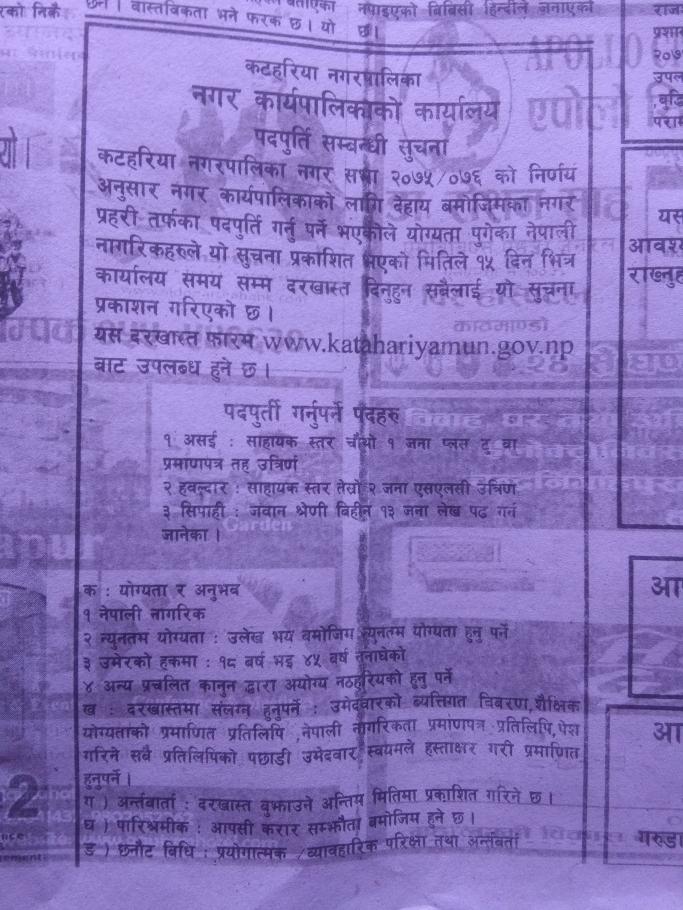 कटहरिया नगरपालिका
नगर कार्यपालिकाको कार्यालय
पदपुर्ति सम्बन्धी सुचना
कटहरिया नगरपालिका नगर सभा २०७५/०७६ को निर्णय
अनुसार नगर कार्यपालिकाको लागि देहाय बमोजिमका नगर
प्रहरी तर्फका पदपुर्ति गर्नु पर्ने भएकोले योग्यता पुगेका नेपाली
नागरिकहरुले यो सुचना प्रकाशित भएको मितिले १५ दिन भित्र
कार्यालय समय सम्म दरखास्त दिनुहुन सबैलाई यो सुचना
प्रकाशन गरिएको छ ।
यस दरखास्त फारम www.katahariyamun.gov.np
बाट उपलब्ध हुने छ ।
पदपुर्ती गर्नुपर्ने पदहरु
१ असई : साहायक स्तर चौथो १ जना प्लस टु वा
प्रमाणपत्र तह उत्रिर्ण
२ हवल्दार : साहायक स्तर तेस्रो २ जना एसएलसी उत्रिर्ण
३ सिपाही : जवान श्रेणी बिहीन १३ जना लेख पढ गर्न
जानेका ।
क : योग्यता र अनुभव
१ नेपाली नागरिक
२ न्युनतम योग्यता : उलेख भय बमोजिम न्युनतम योग्यता हुनु पर्ने
३ उमेरको हकमा : १८ बर्ष भइ ४५ बर्ष ननाघेको
४ अन्य प्रचलित कानुन द्वारा अयोग्य नठहरियको हुनु पर्ने
ख : दरखास्तमा संलग्न हुनुपर्ने : उमेदवारको ब्यत्तिगत बिबरण,शैक्षिक
योग्यताको प्रमाणित प्रतिलिपि ,नेपाली नागरिकता प्रमाणपत्र प्रतिलिपि,पेश
गरिने सबै प्रतिलिपिको पछाडी उमेदवार स्वयमले हस्ताक्षर गरी प्रमाणित
हुनुपर्ने ।
ग ) अर्न्तबार्ता : दरखास्त बुझाउने अन्तिम मितिमा प्रकाशित गरिने छ ।
घ ) पारिश्रमीक : आपसी करार सम्झौता बमोजिम हुने छ ।
ङ ) छनौट बिधि : प्रयोगात्मक /व्यावहारिक परिक्षा तथा अर्न्तबर्ता